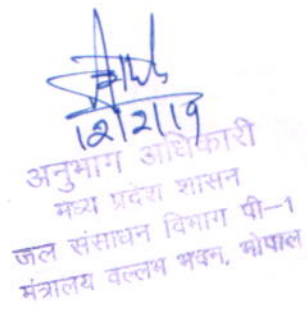 12/2/19
अनुभाग अधिकारी
मध्य प्रदेश शासन
जल संसाधन विभाग पी-1
मंत्रालय वल्लभ भवन, भोपाल